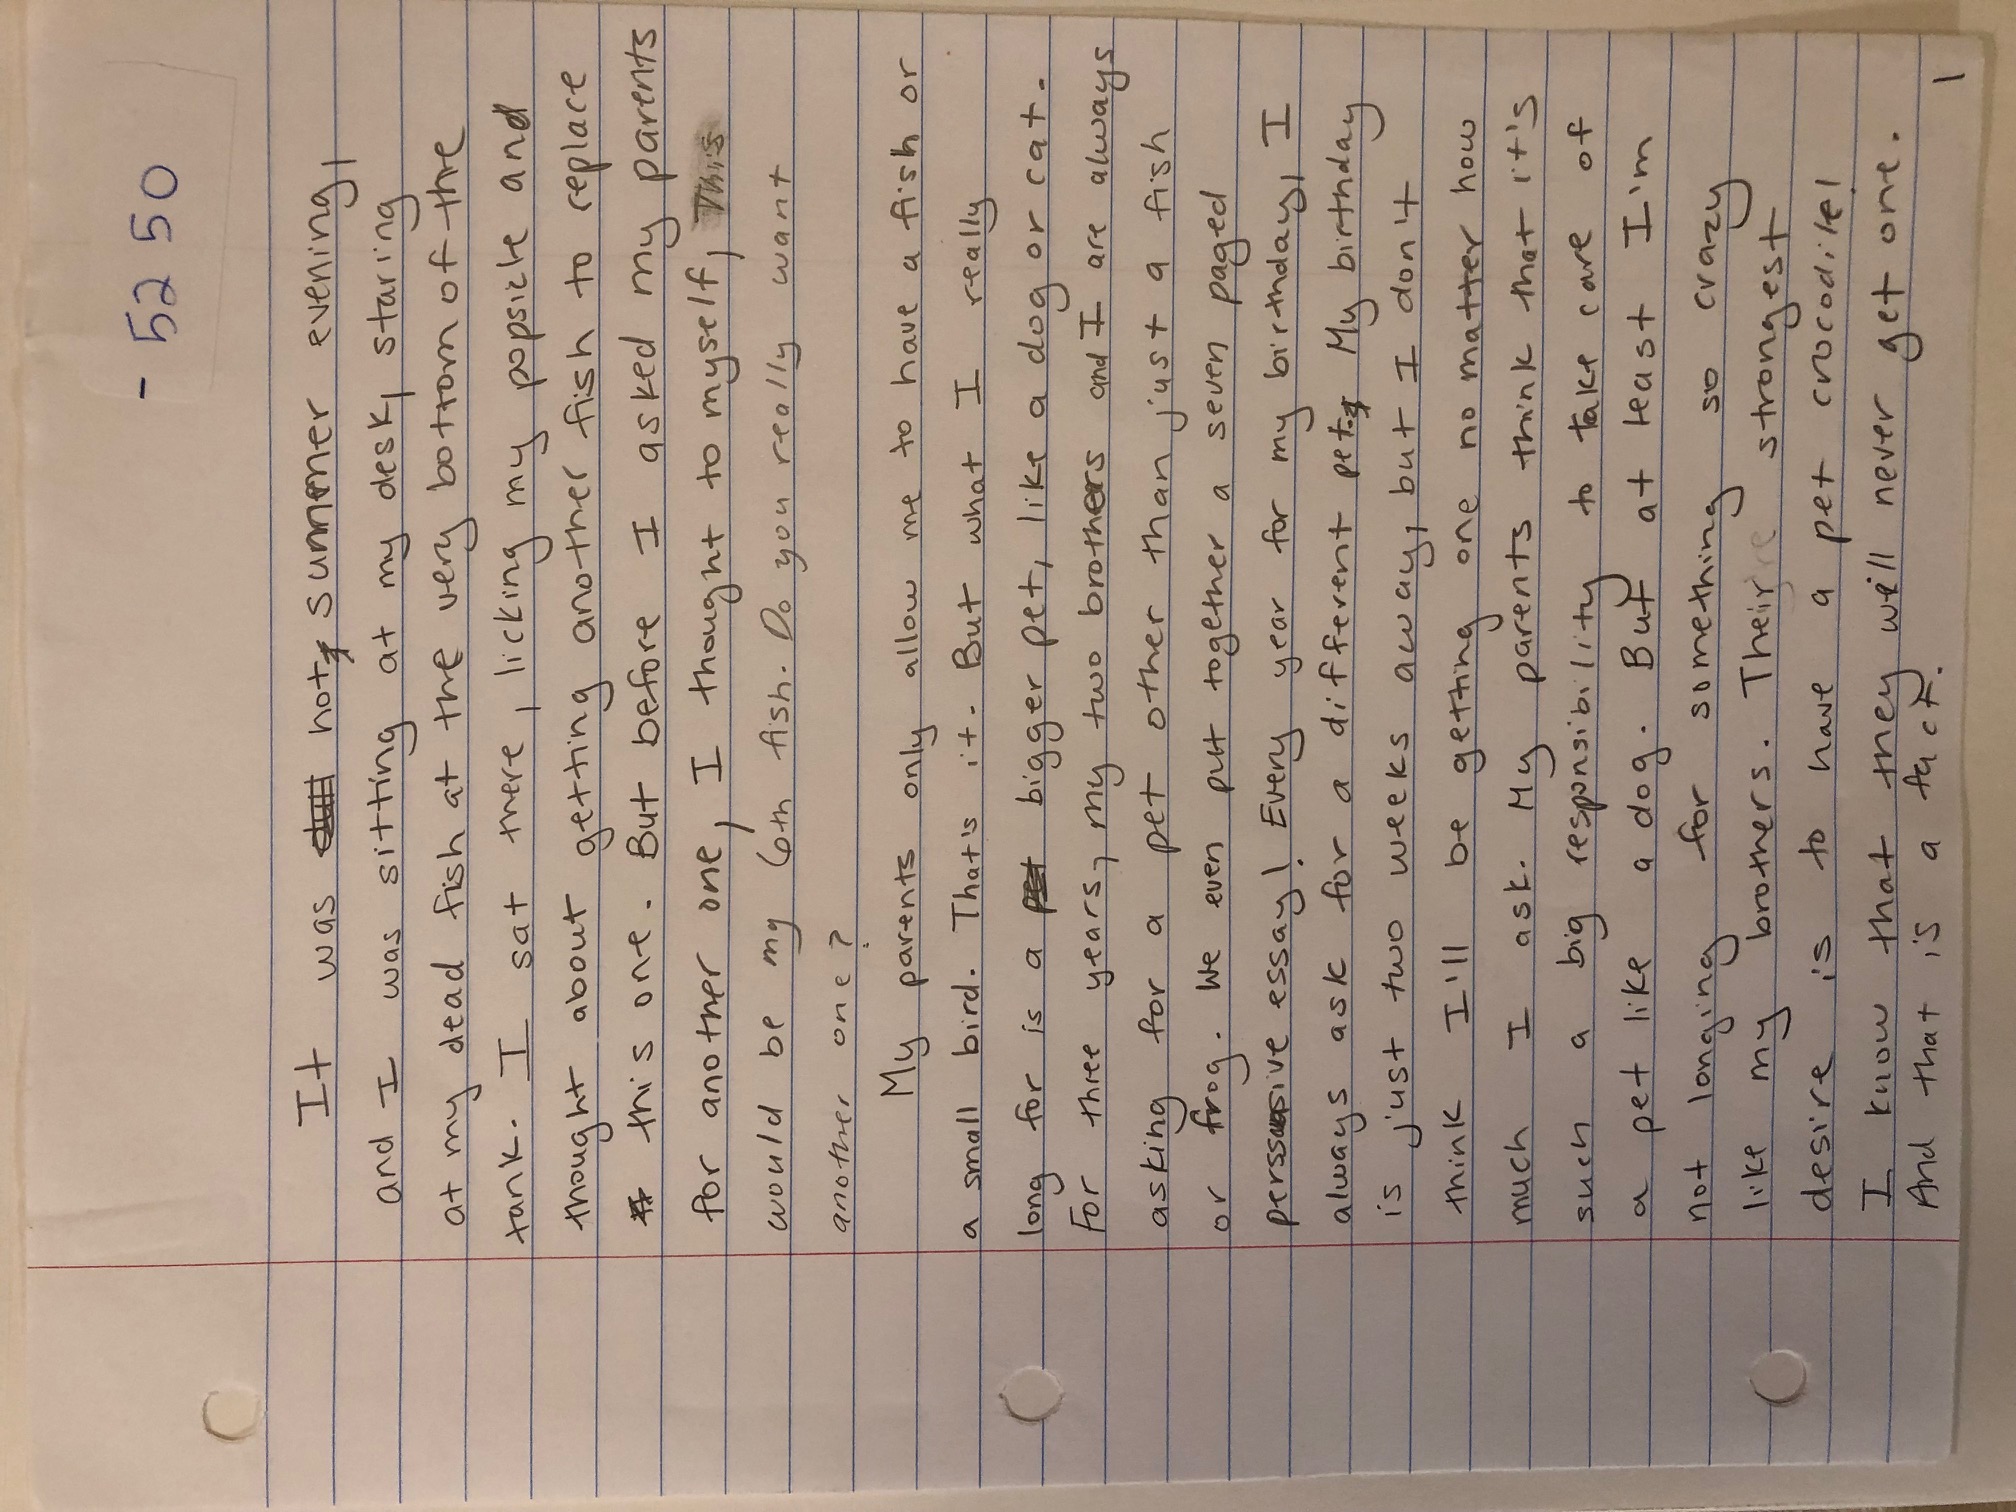 - 5250
It was hot, summer evening,
and I was sitting at my desk, staring
at my dead fish at the very bottom of the
tank. I sat there, licking my popsicle and
thought about getting another fish to replace
this one. But before I asked my parents
for another one, I thought to myself, This
would be my 6th fish. Do you really want
another one?
My parents only allow me to have a fish or
a small bird. That's it. But what I really
long for is a bigger pet, like a dog or cat.
For three years, my two brothers and I are always
asking for a pet other than just a fish
or frog. We even put together a seven paged
perssuasive essay! Every year for my birthday, I
always ask for a different pet. My birthday
is just two weeks away, but I don't
think I'll be getting one no matter how
much I ask. My parents think that it's
such a big responsibility to take care of
a pet like a dog. But at least I'm
not longing for something so crazy
like my brothers. Their strongest
desire is to have a pet crocodile!
I know that they will never get one.
And that is a fact.
1